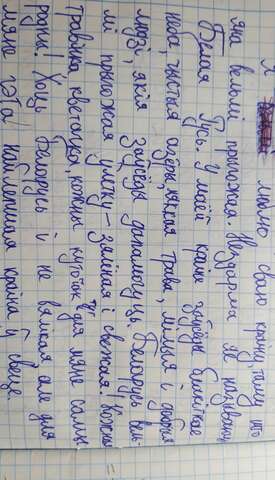 Я люблю сваю краіну, таму што
яна вельмі прыгожая. Нездарма яе называюць
Белая Русь. У маёй краіне заўсёды блакітнае
неба, чыстыя азёры, мяккая трава, мілыя і добрыя
людзі, якія заўсёды дапамогуць. Беларусь вель-
мі прыгожая улетку - зялёная і свежая! Кожны
травінка, кветачка, кожны куточак тут для мяне самы
родны! Хоць Беларусь і не вялікая але для
мяне гэта найлепшая краіна ў свеце.